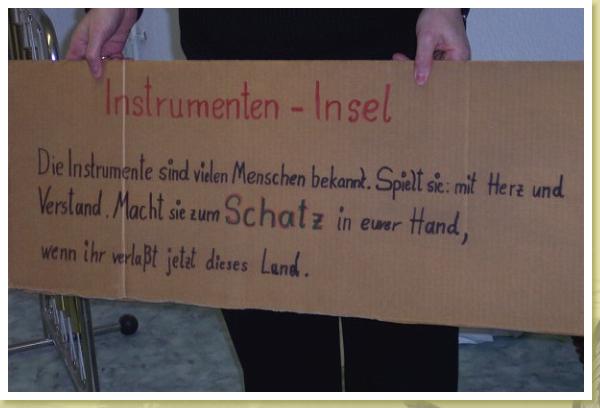 Instrumenten - Insel
Die Instrumente sind vielen Menschen bekannt. Spielt sie: mit Herz und
Verstand. Macht sie zum Schatz in eurer Hand,
wenn ihr verlaßt jetzt dieses Land.